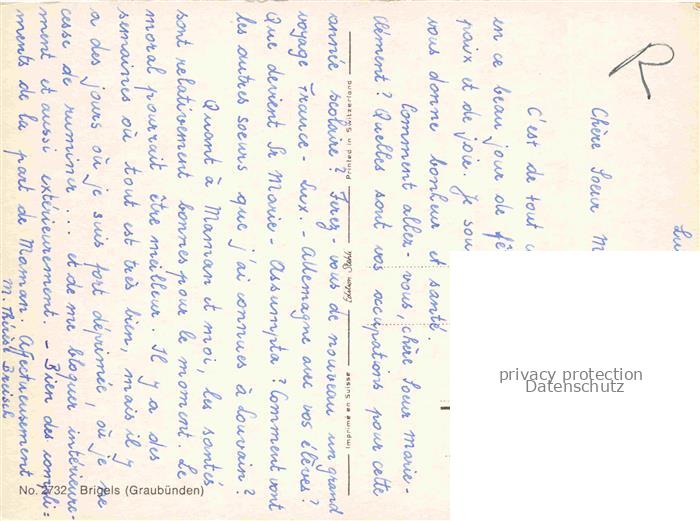 Lu
Chère Soeur M
C'est de tout
en ce beau jour de fê
paix et de joie. Je sou
vous donne bonheur et santé.
Comment allez-vous, chère Soeur Marie-
Clément? Quelles sont vos occupations pour cette
année scolaire? Ferez-vous de nouveau un grand
voyage France - Lux. - Allemagne avec vos élèves?
Que devient Sr Marie-Assumpta? Comment vont
les autres soeurs que j'ai connues à Louvain?
Quant à Maman et moi, les santés
sont relativement bonnes pour le moment. Le
moral pourrait être meilleur. Il y a des
semaines où tout est très bien, mais il y
a des jours où je suis fort déprimée, où je ne
cesse de ruminer ... et de me bloquer intérieure-
ment et aussi extérieurement. - Bien des compli=
ments de la part de Maman. Affectueusement
M. Thérèse
R
Imprimé en Suisse
Printed in Switzerland
No. 2732 Brigels (Graubünden)
privacy protection
Datenschutz